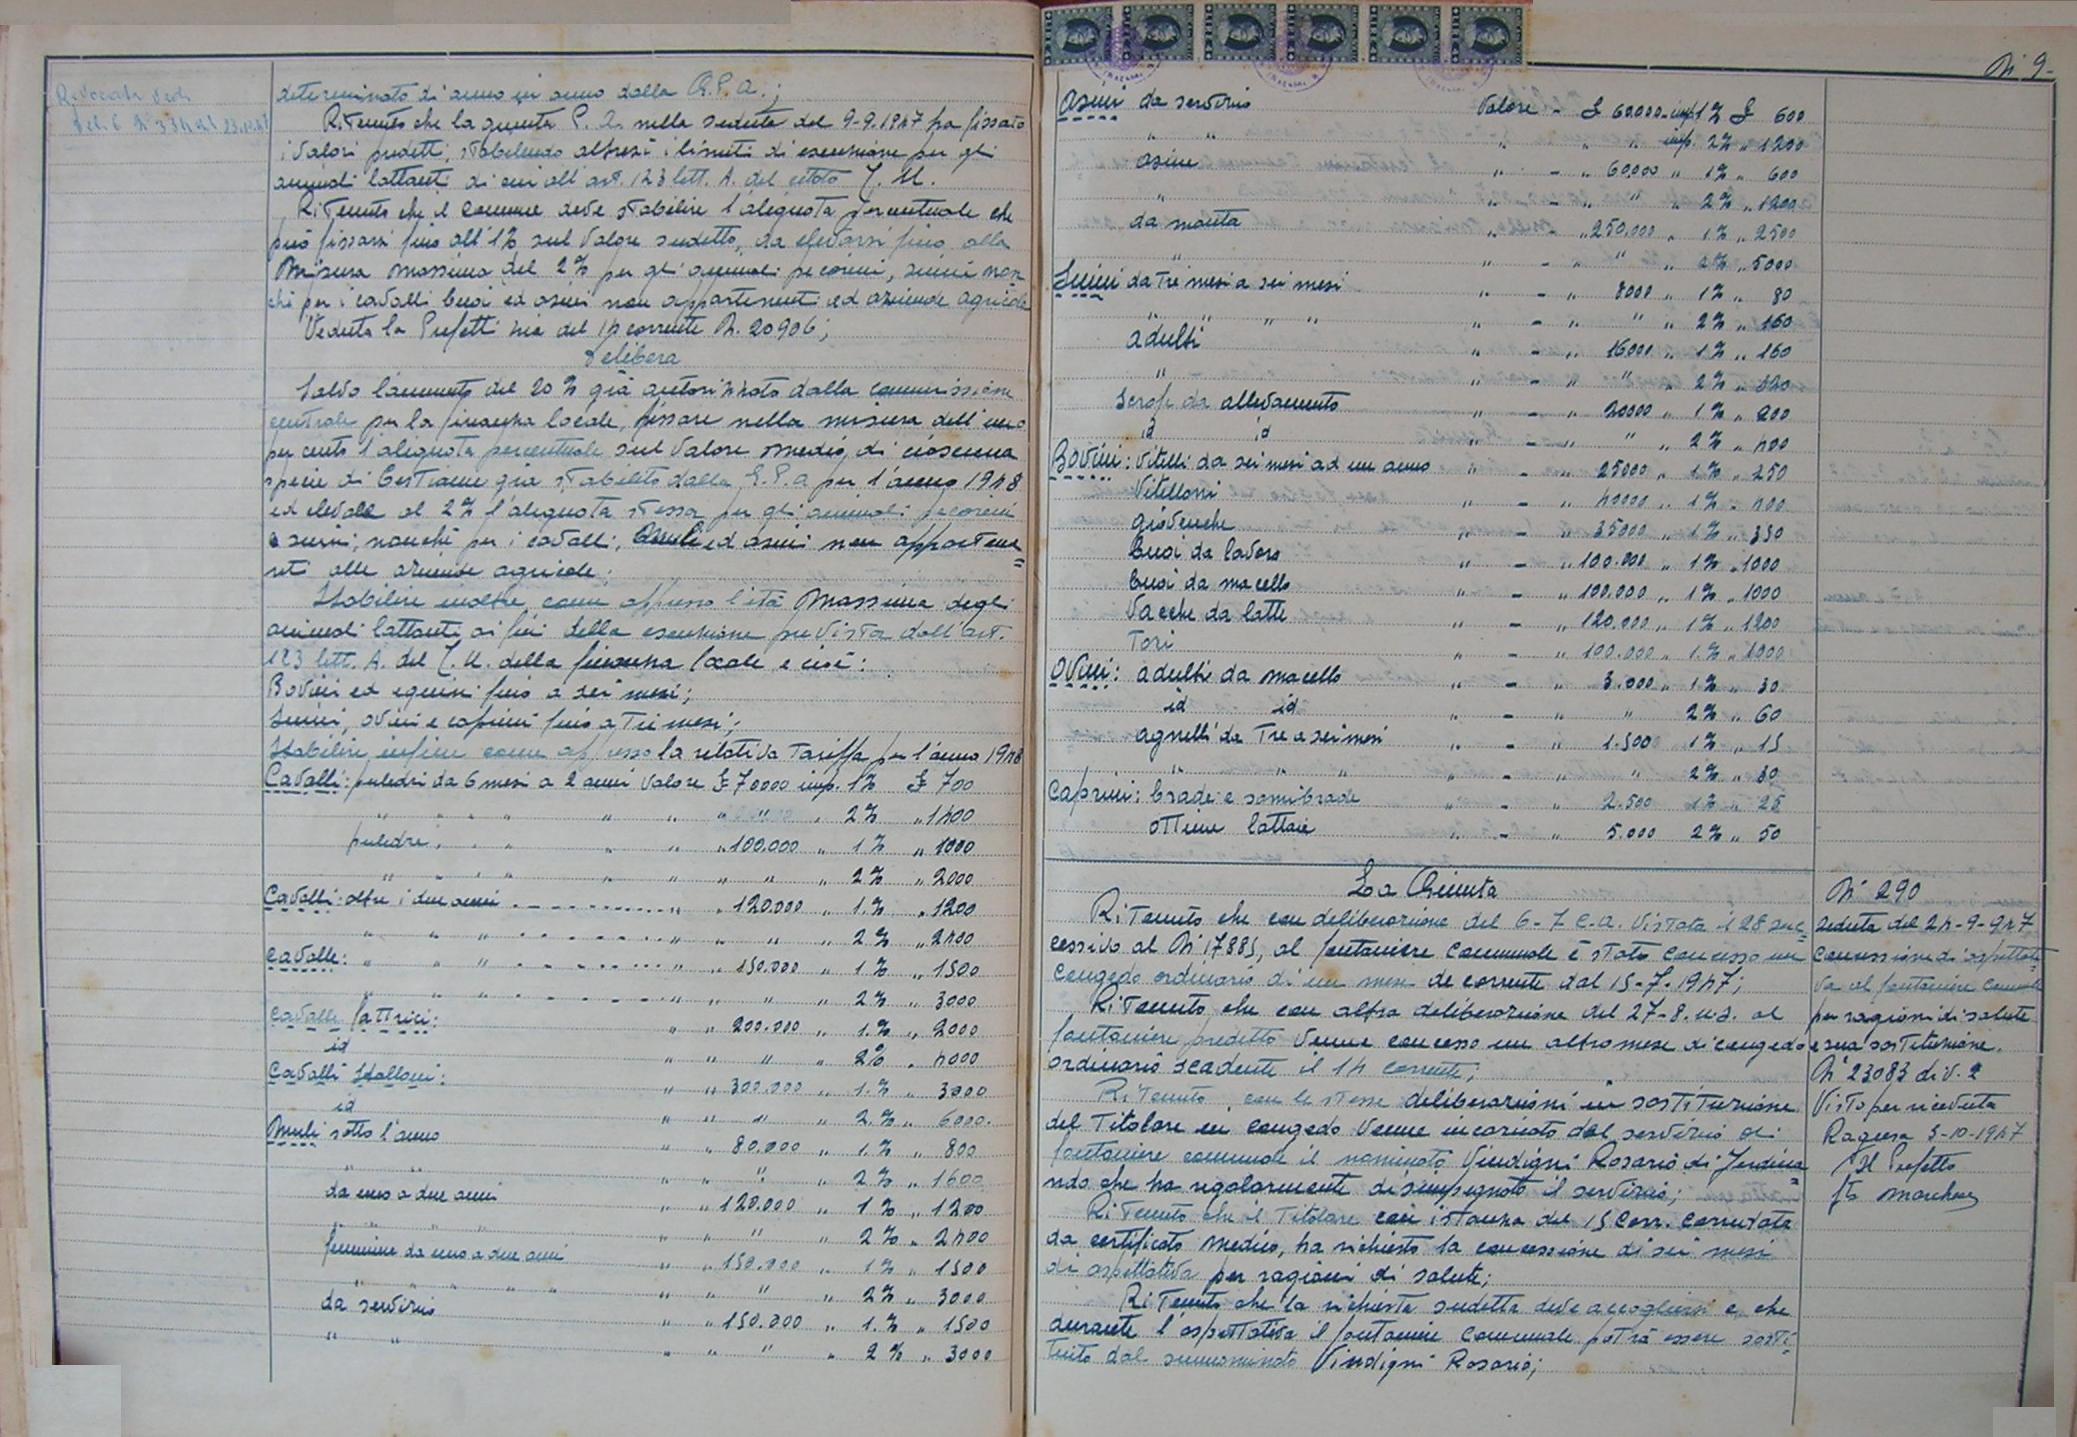 Revocata vedi
del. G. N. 334 del 23.10.47
determinato di anno in anno dalla G.P.A.;
Ritenuto che la giunta P. A. nella seduta del 9-9.1947 ha fissato
i valori predetti, stabilendo altresì i limiti di esenzione per gli
animali lattanti di cui all'art. 123 lett. A. del citato T. U.
Ritenuto che il comune deve stabilire l'aliquota percentuale che
può fissarsi fino all'1% sul valore sudetto, da elevarsi fino alla
misura massima del 2% per gli animali pecorini, suini non
chè per i cavalli buoi ed asini non appartenenti ad aziende agricole
Veduta la Prefettizia del 14 corrente N. 20906;
Delibera
Salvo l'aumento del 20% già autorizzato dalla commissione
centrale per la finanza locale, fissare nella misura dell'uno
per cento l'aliquota percentuale sul valore medio di ciascuna
specie di bestiame già stabilito dalla G.P.A per l'anno 1948
ed elevare al 2% l'aliquota stessa per gli animali pecorini
e suini, nonchè per i cavalli, muli ed asini non appartene=
nti alle aziende agricole;
Stabilire inoltre come appresso l'età massima degli
animali lattanti ai fini della esenzione prevista dall'art.
123 lett. A. del T. U. della finanza locale e cioè:
Bovini ed equini fino a sei mesi;
Suini, ovini e caprini fino a tre mesi;
Stabilire infine come appresso la relativa tariffa per l'anno 1948
Cavalli: puledri da 6 mesi a 2 anni valore £ 70000 imp. 1% £ 700
" " " " " " " " " 2% " 1400
puledre: " " " " " 100.000 " 1% " 1000
" " " " " " " " " 2% " 2000
Cavalli: oltre i due anni " " 120.000 " 1% " 1200
" " " " " " " 2% " 2400
Cavalle: " " " " " 150.000 " 1% " 1500
" " " " " " " 2% " 3000
Cavalle fattrici: " " 200.000 " 1% " 2000
id " " " " 2% " 4000
Cavalli stalloni: " " 300.000 " 1% " 3000
id " " " " 2% " 6000.
Muli sotto l'anno " " 80.000 " 1% " 800
" " " " " " 2% " 1600
da uno a due anni " " 120.000 " 1% " 1200
" " " " " " " " 2% " 2400
femmine da uno a due anni " " 150.000 " 1% " 1500
" " " " " " " " " 2% " 3000
da servizio " " 150.000 " 1.% " 1500
" " " " " " 2% " 3000
N. 9-
Asini da servizio Valore - £ 60.000 - imp. 1% £ 600
" " " " " imp. 2% " 1200
asine " - " 60.000 " 1% " 600
" " - " " " 2% " 1200
da monta " - " 250.000 " 1% " 2500
" " - " " " 2% " 5000
Suini da tre mesi a sei mesi " - " 8000 " 1% " 80
" " " " " - " " " 2% " 160
adulti " - " 16000 " 1% " 160
" " - " " " 2% " 320
Scrofe da allevamento " - " 20000 " 1% " 200
id id " - " " " 2% " 400
Bovini: Vitelli da sei mesi ad un anno " - " 25000 " 1% " 250
Vitelloni " - " 40000 " 1% " 400
giovenche " - " 35000 " 1% " 350
buoi da lavoro " - " 100.000 " 1% " 1000
buoi da macello " - " 100.000 " 1% " 1000
Vacche da latte " - " 120.000 " 1% " 1200
Tori " - " 100.000 " 1.% " 1000
Ovini: adulti da macello " - " 3.000 " 1% " 30
id id " - " " 2% " 60
agnelli da tre a sei mesi " - " 1.500 1% " 15
" " " " - " " 2% " 30
Caprini: brade e semibrade " - " 2.500 1% " 25
ottime lattaie " - " 5.000 2% " 50
La Giunta
Ritenuto che con deliberazione del 6-7 c.a. vistata il 28 suc=
cessivo al N. 17885, al fontaniere comunale è stato concesso un
congedo ordinario di un mese decorrente dal 15-7-1947;
Ritenuto che con altra deliberazione del 27-8. u.s. al
fontaniere predetto venne concesso un altro mese di congedo
ordinario scadente il 14 corrente;
Ritenuto, con le stesse deliberazioni in sostituzione
del titolare in congedo venne incaricato del servizio di
fontaniere comunale il nominato Vindigni Rosario di Ferdina=
ndo che ha regolarmente disimpegnato il servizio;
Ritenuto che il titolare con istanza del 15 corr. corredata
da certificato medico, ha richiesto la concessione di sei mesi
di aspettativa per ragioni di salute;
Ritenuto che la richiesta sudetta deve accogliersi e che
durante l'aspettativa il fontaniere comunale potrà essere sosti=
tuito dal summominato Vindigni Rosario;
N. 290
seduta del 24-9-947
Concessione di aspettati=
va al fontaniere comunale
per ragioni di salute
e sua sostituzione.
N. 23083 div. 2
Visto per ricevuta
Ragusa 3-10-1947
Il Prefetto